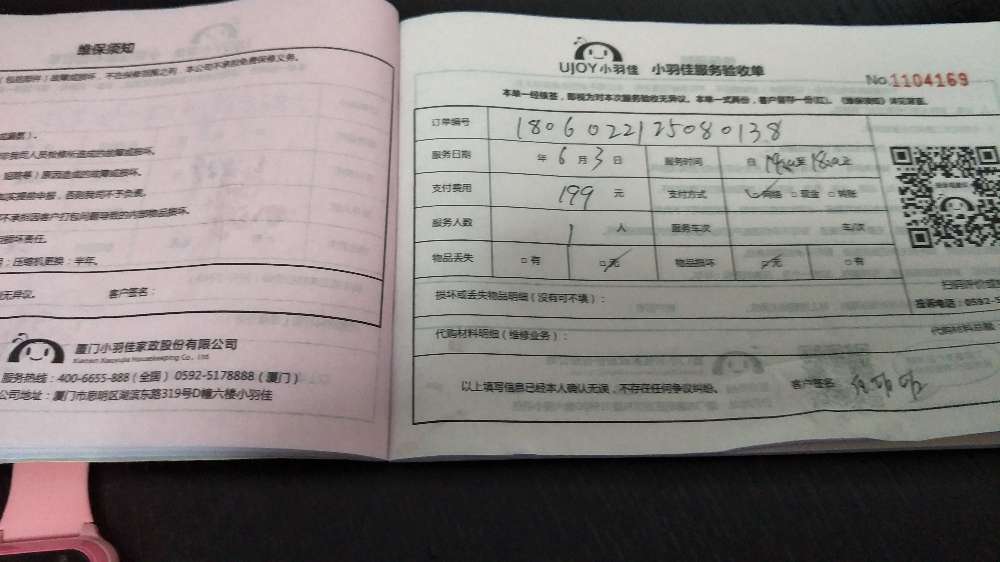 维保须知
(包括部件)故障或损坏，不在保修范围之列，本公司不承担免费保修义务。
或漏氟)。
非我司人员检修所造成的故障或损坏。
原因造成的故障或损坏。
否则我司不予负责。
不承担因客户打包问题导致的内部物品损坏。
担损坏责任。
；压缩机更换：半年。
无异议。 客户签名：
厦门小羽佳家政股份有限公司
Xiamen Xiaoyujia Housekeeping Co., Ltd.
服务热线：400-6655-888(全国) 0592-5178888(厦门)
公司地址：厦门市思明区湖滨东路319号D幢六楼小羽佳
UJOY小羽佳 小羽佳服务验收单
No 1104169
本单一经核签，即视为对本次服务验收无异议。本单一式两份，客户留存一份(红)。《维保须知》详见背面。
订单编号 1806022125080138
服务日期 年 6 月 3 日 服务时间 自 至
支付费用 199 元 支付方式 网络 □现金 □转账
服务人数 1 人 服务车次 车/次
物品丢失 □有 □无 物品损坏 □无 □有
扫码评价或
投诉电话：0592-5
损坏或丢失物品明细(没有可不填)：
代购材料明细(维修业务)：
代购材料总额
以上填写信息已经本人确认无误，不存在任何争议纠纷。 客户签名